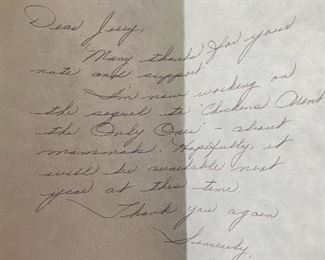 Dear Jerry,
Many thanks for your
note and support
I'm now working on
the sequel to "Chickens Aren't
the Only Ones" - about
mammals. Hopefully, it
will be available next
year at this time.
Thank you again
Sincerely,